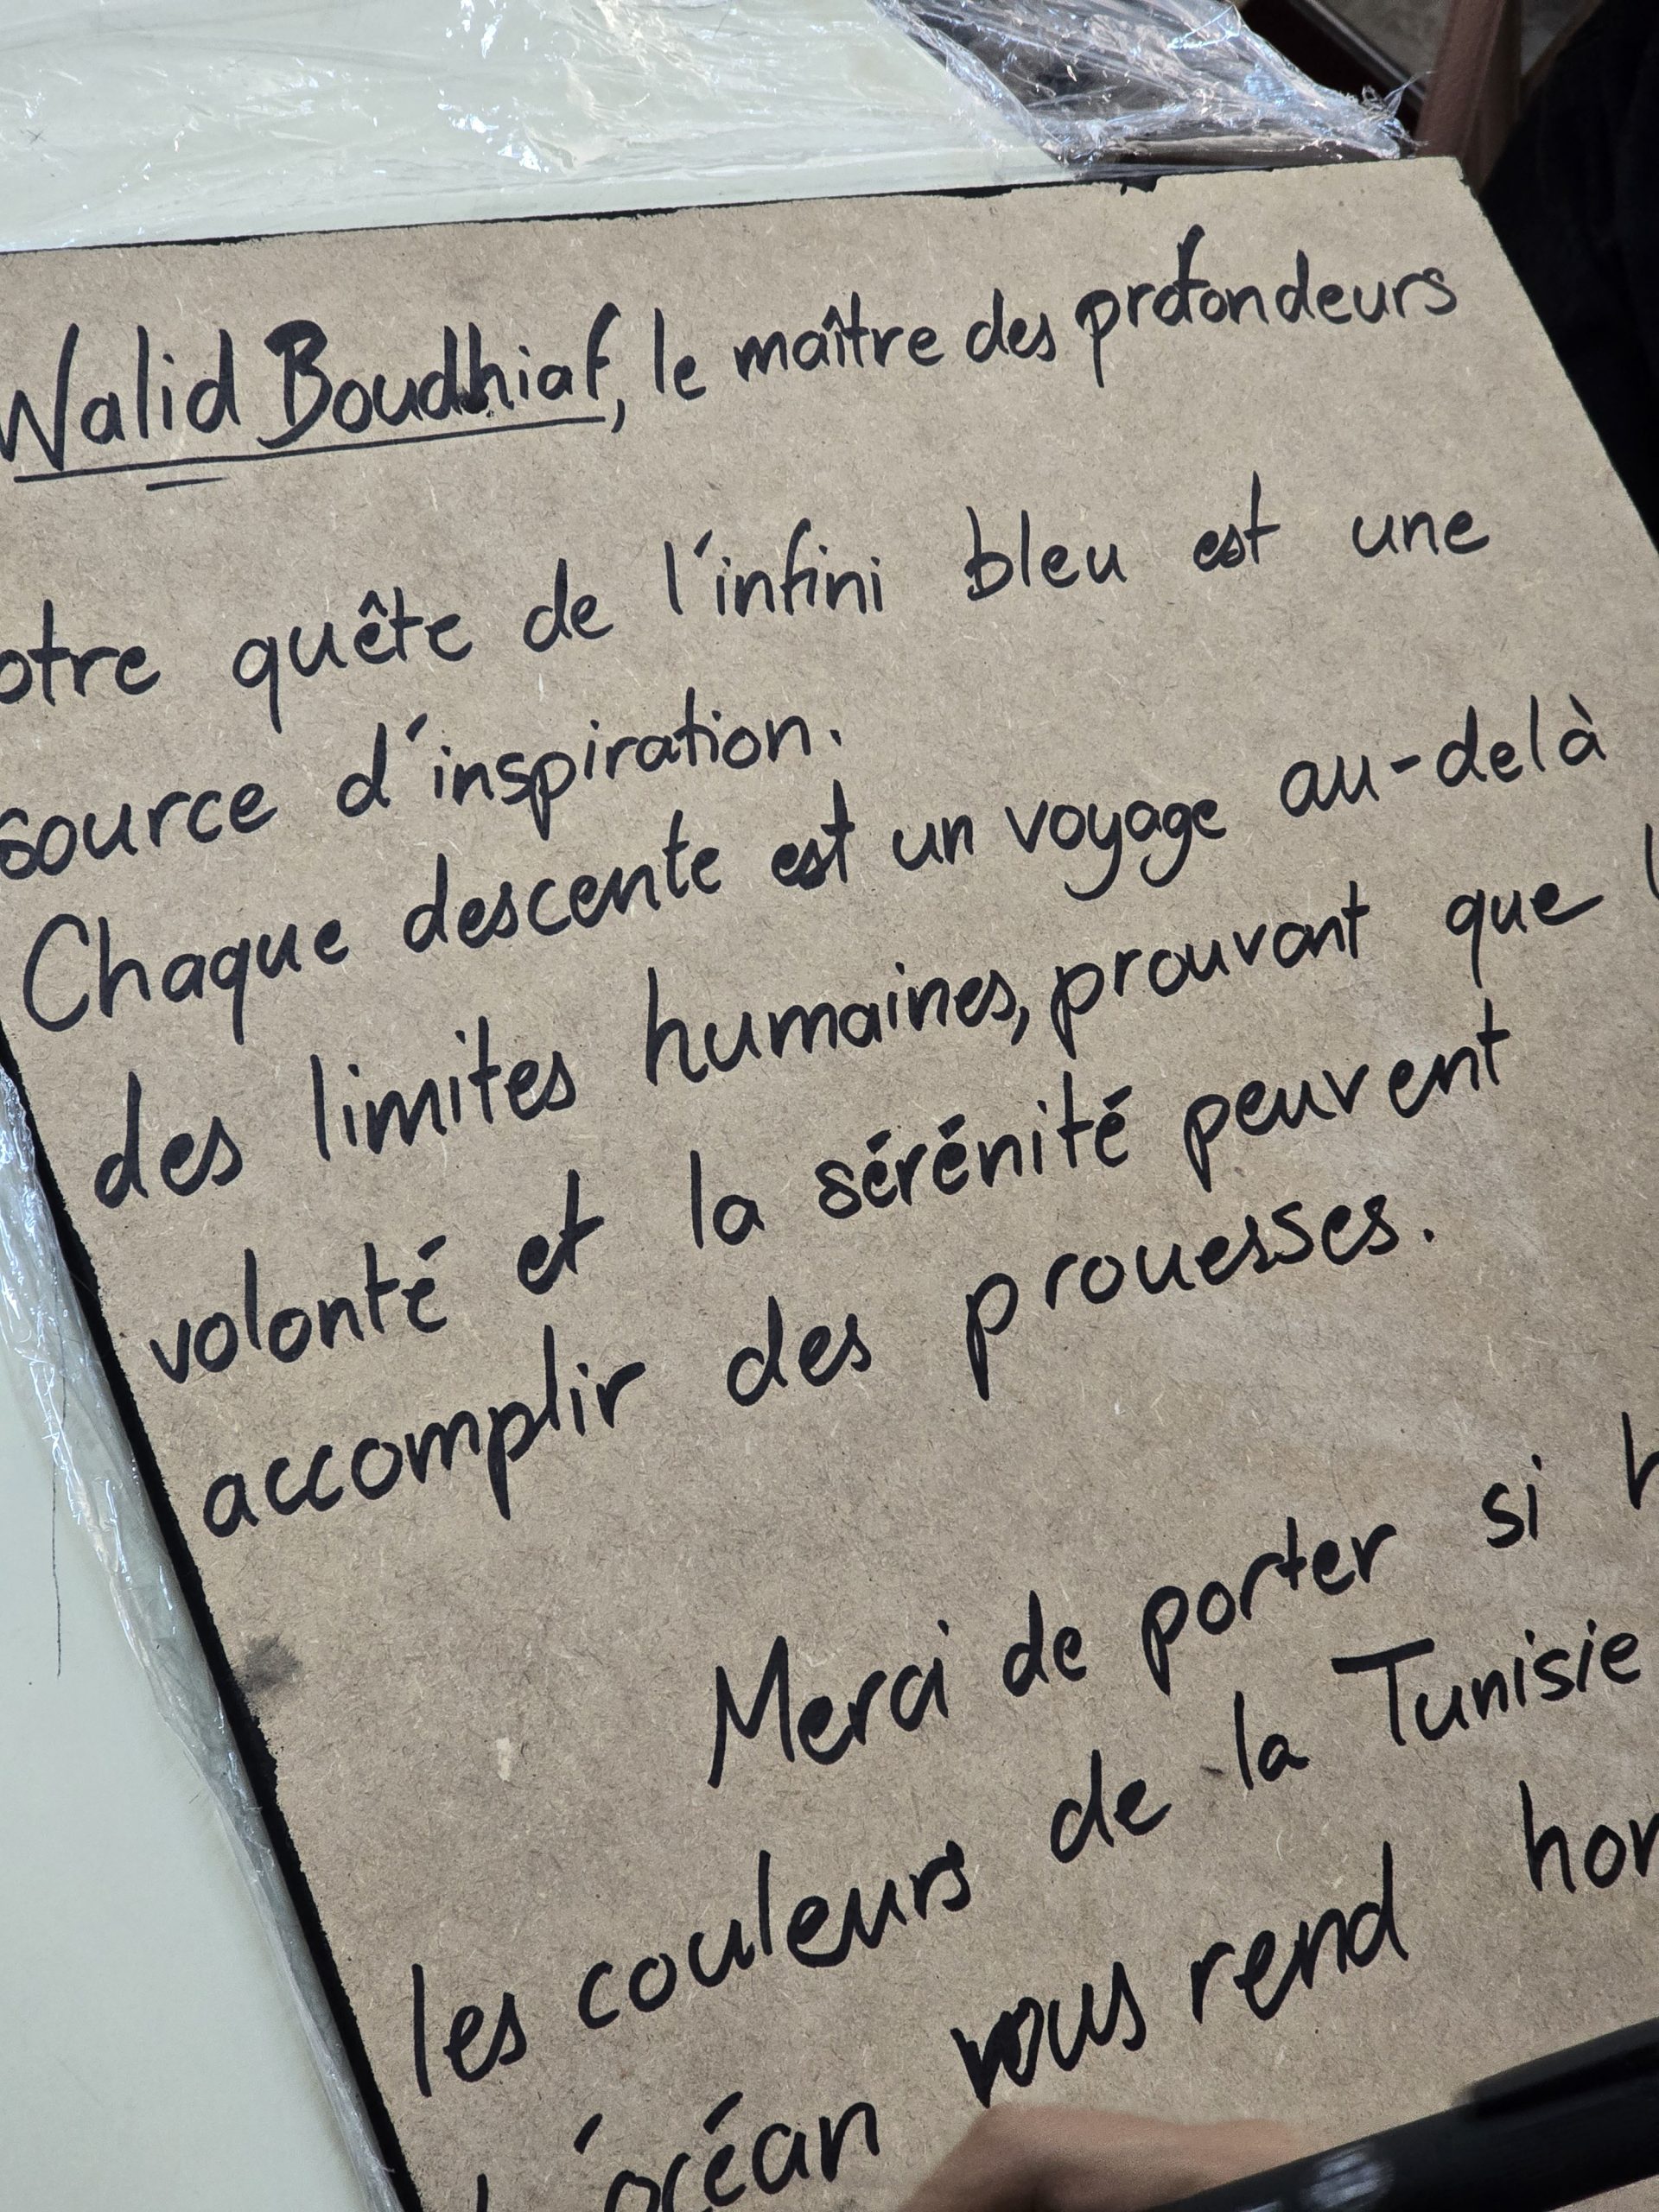 Walid Boudhiaf, le maître des profondeurs
otre quête de l'infini bleu est une
source d'inspiration.
Chaque descente est un voyage au-delà
des limites humaines, prouvant que
volonté et la sérénité peuvent
accomplir des prouesses.
Merci de porter si
les couleurs de la Tunisie
océan vous rend hon